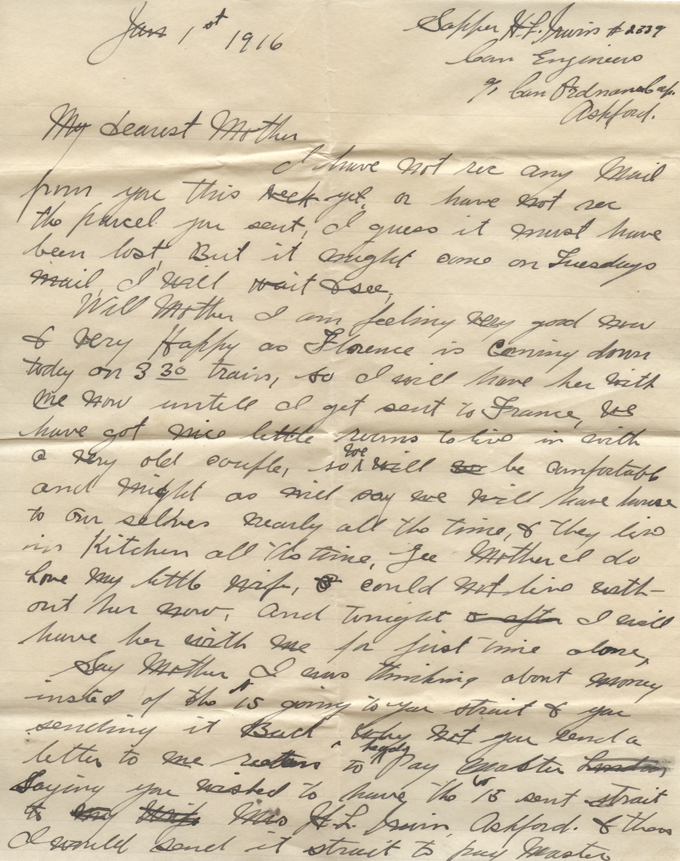 Jan 1st 1916
Sapper H. L. Irwin # 2339
Can Engineers
c/o Can Ordnance Cop.
Ashford.
My Dearest Mother
I have not rec any Mail
from you this week yet, or have not rec
the parcel you sent, I guess it must have
been lost, But it might come on Tuesdays
mail, I will wait & see,
Will Mother I am feeling very good now
& very Happy as Florence is coming down
today on 3 30 train, so I will have her with
me now untill I get sent to France, We
have got nice little rooms to live in with
a very old couple, so we will be comfortable
and might as will say we will have house
to our selves nearly all the time, & they live
in Kitchen all the time, Gee Mother I do
Love my little wife, could not live with-
out her now, and tonight I will
have her with me for first time alone,
Say Mother I was thinking about money
insted of the $15 going to you strait & you
sending it Back why not you send a
letter to me ready to Pay master London
Saying you wished to have the $15 sent strait
to my Wife Mrs H. L. Irwin Ashford. & then
I would send it strait to pay Master